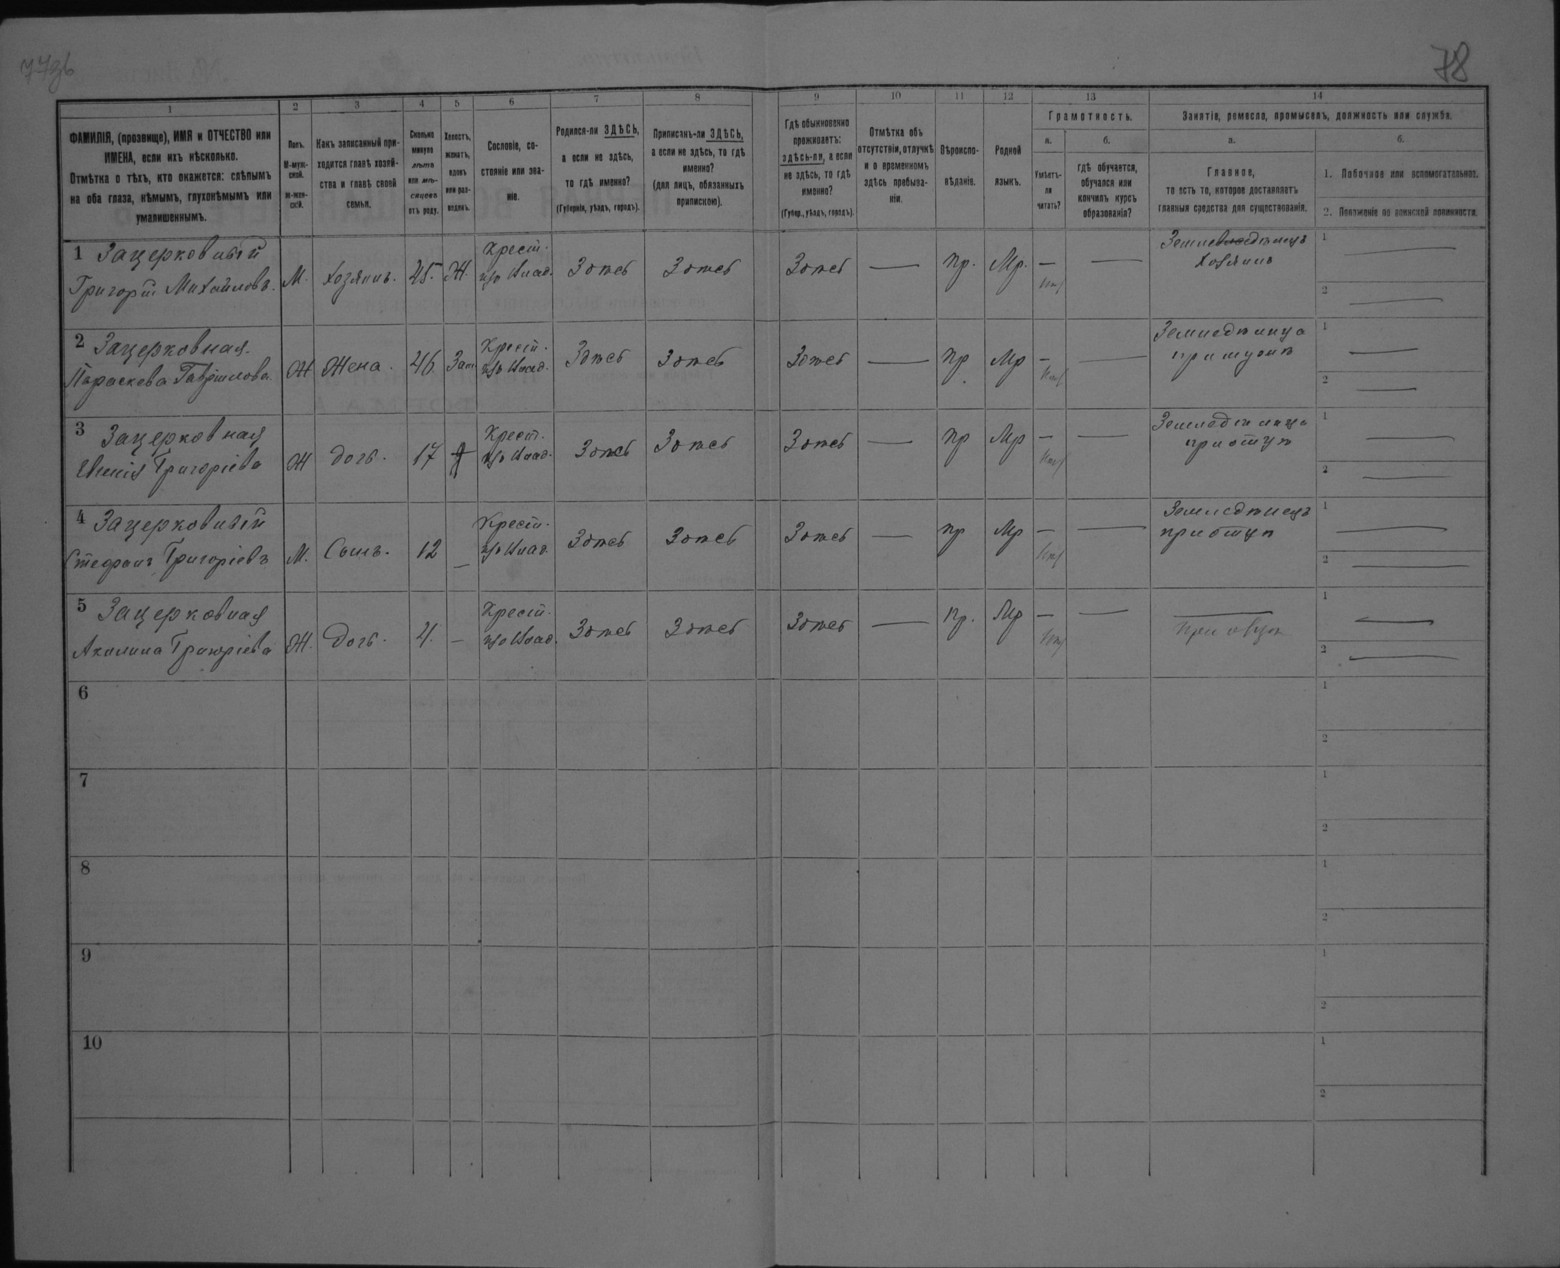 77об
78
1
2
3
4
5
6
7
8
9
10
11
12
13
14
ФАМИЛІЯ, (прозвище), ИМЯ и ОТЧЕСТВО или
ИМЕНА, если ихъ нѣсколько.
Отмѣтка о тѣхъ, кто окажется: слѣпымъ
на оба глаза, нѣмымъ, глухонѣмымъ или
умалишеннымъ.
Полъ.
М-муж-
ской.
Ж-жен-
скій.
Какъ записанный при-
ходится главѣ хозяй-
ства и главѣ своей
семьи.
Сколько
минуло
лѣтъ
или мѣ-
сяцевъ
отъ роду.
Холостъ,
женатъ,
вдовъ
или раз-
веденъ.
Сословіе, со-
стояніе или зва-
ніе.
Родился-ли ЗДѢСЬ,
а если не здѣсь,
то гдѣ именно?
(Губернія, уѣздъ, городъ).
Приписанъ-ли ЗДѢСЬ,
а если не здѣсь, то гдѣ
именно?
(для лицъ, обязанныхъ
припискою).
Гдѣ обыкновенно
проживаетъ:
здѣсь-ли, а если
не здѣсь, то гдѣ
именно?
(Губер., уѣздъ, городъ).
Отмѣтка объ
отсутствіи, отлучкѣ
и о временномъ
здѣсь пребыва-
ніи.
Вѣроиспо-
вѣданіе.
Родной
языкъ.
Грамотность.
а.
Умѣетъ-
ли
читать?
б.
Гдѣ обучается,
обучался или
кончилъ курсъ
образованія?
Занятіе, ремесло, промыселъ, должность или служба.
а.
Главное,
то есть то, которое доставляетъ
главныя средства для существованія.
б.
1. Побочное или вспомогательное.
2. Положеніе по воинской повинности.
1 Зацерковный
Григорій Михайловъ.
М. Хозяинъ. 45. Ж.
Крест.
Здѣсь Здѣсь Здѣсь — Пр. Мр. — —
Земледѣлецъ
Хозяинъ
1 —
2 —
2 Зацерковная.
Параскева Гавріилова.
Ж Жена. 46 Зам
Крест.
Здѣсь Здѣсь Здѣсь — Пр Мр — —
Земледѣлица
1 —
2 —
3 Зацерковная
Григоріева
Ж Дочь. 17
Крест.
Здѣсь Здѣсь Здѣсь — Пр Мр — —
Земледѣлица
1 —
2 —
4 Зацерковный
Стефанъ Григоріевъ
М. Сынъ. 12 —
Крест.
Здѣсь Здѣсь Здѣсь — Пр Мр — —
Земледѣлецъ
1 —
2 —
5 Зацерковная
Акилина Григоріева
Ж. Дочь. 4. —
Крест.
Здѣсь Здѣсь Здѣсь — Пр. Мр — — —
1 —
2 —
6
1
2
7
1
2
8
1
2
9
1
2
10
1
2